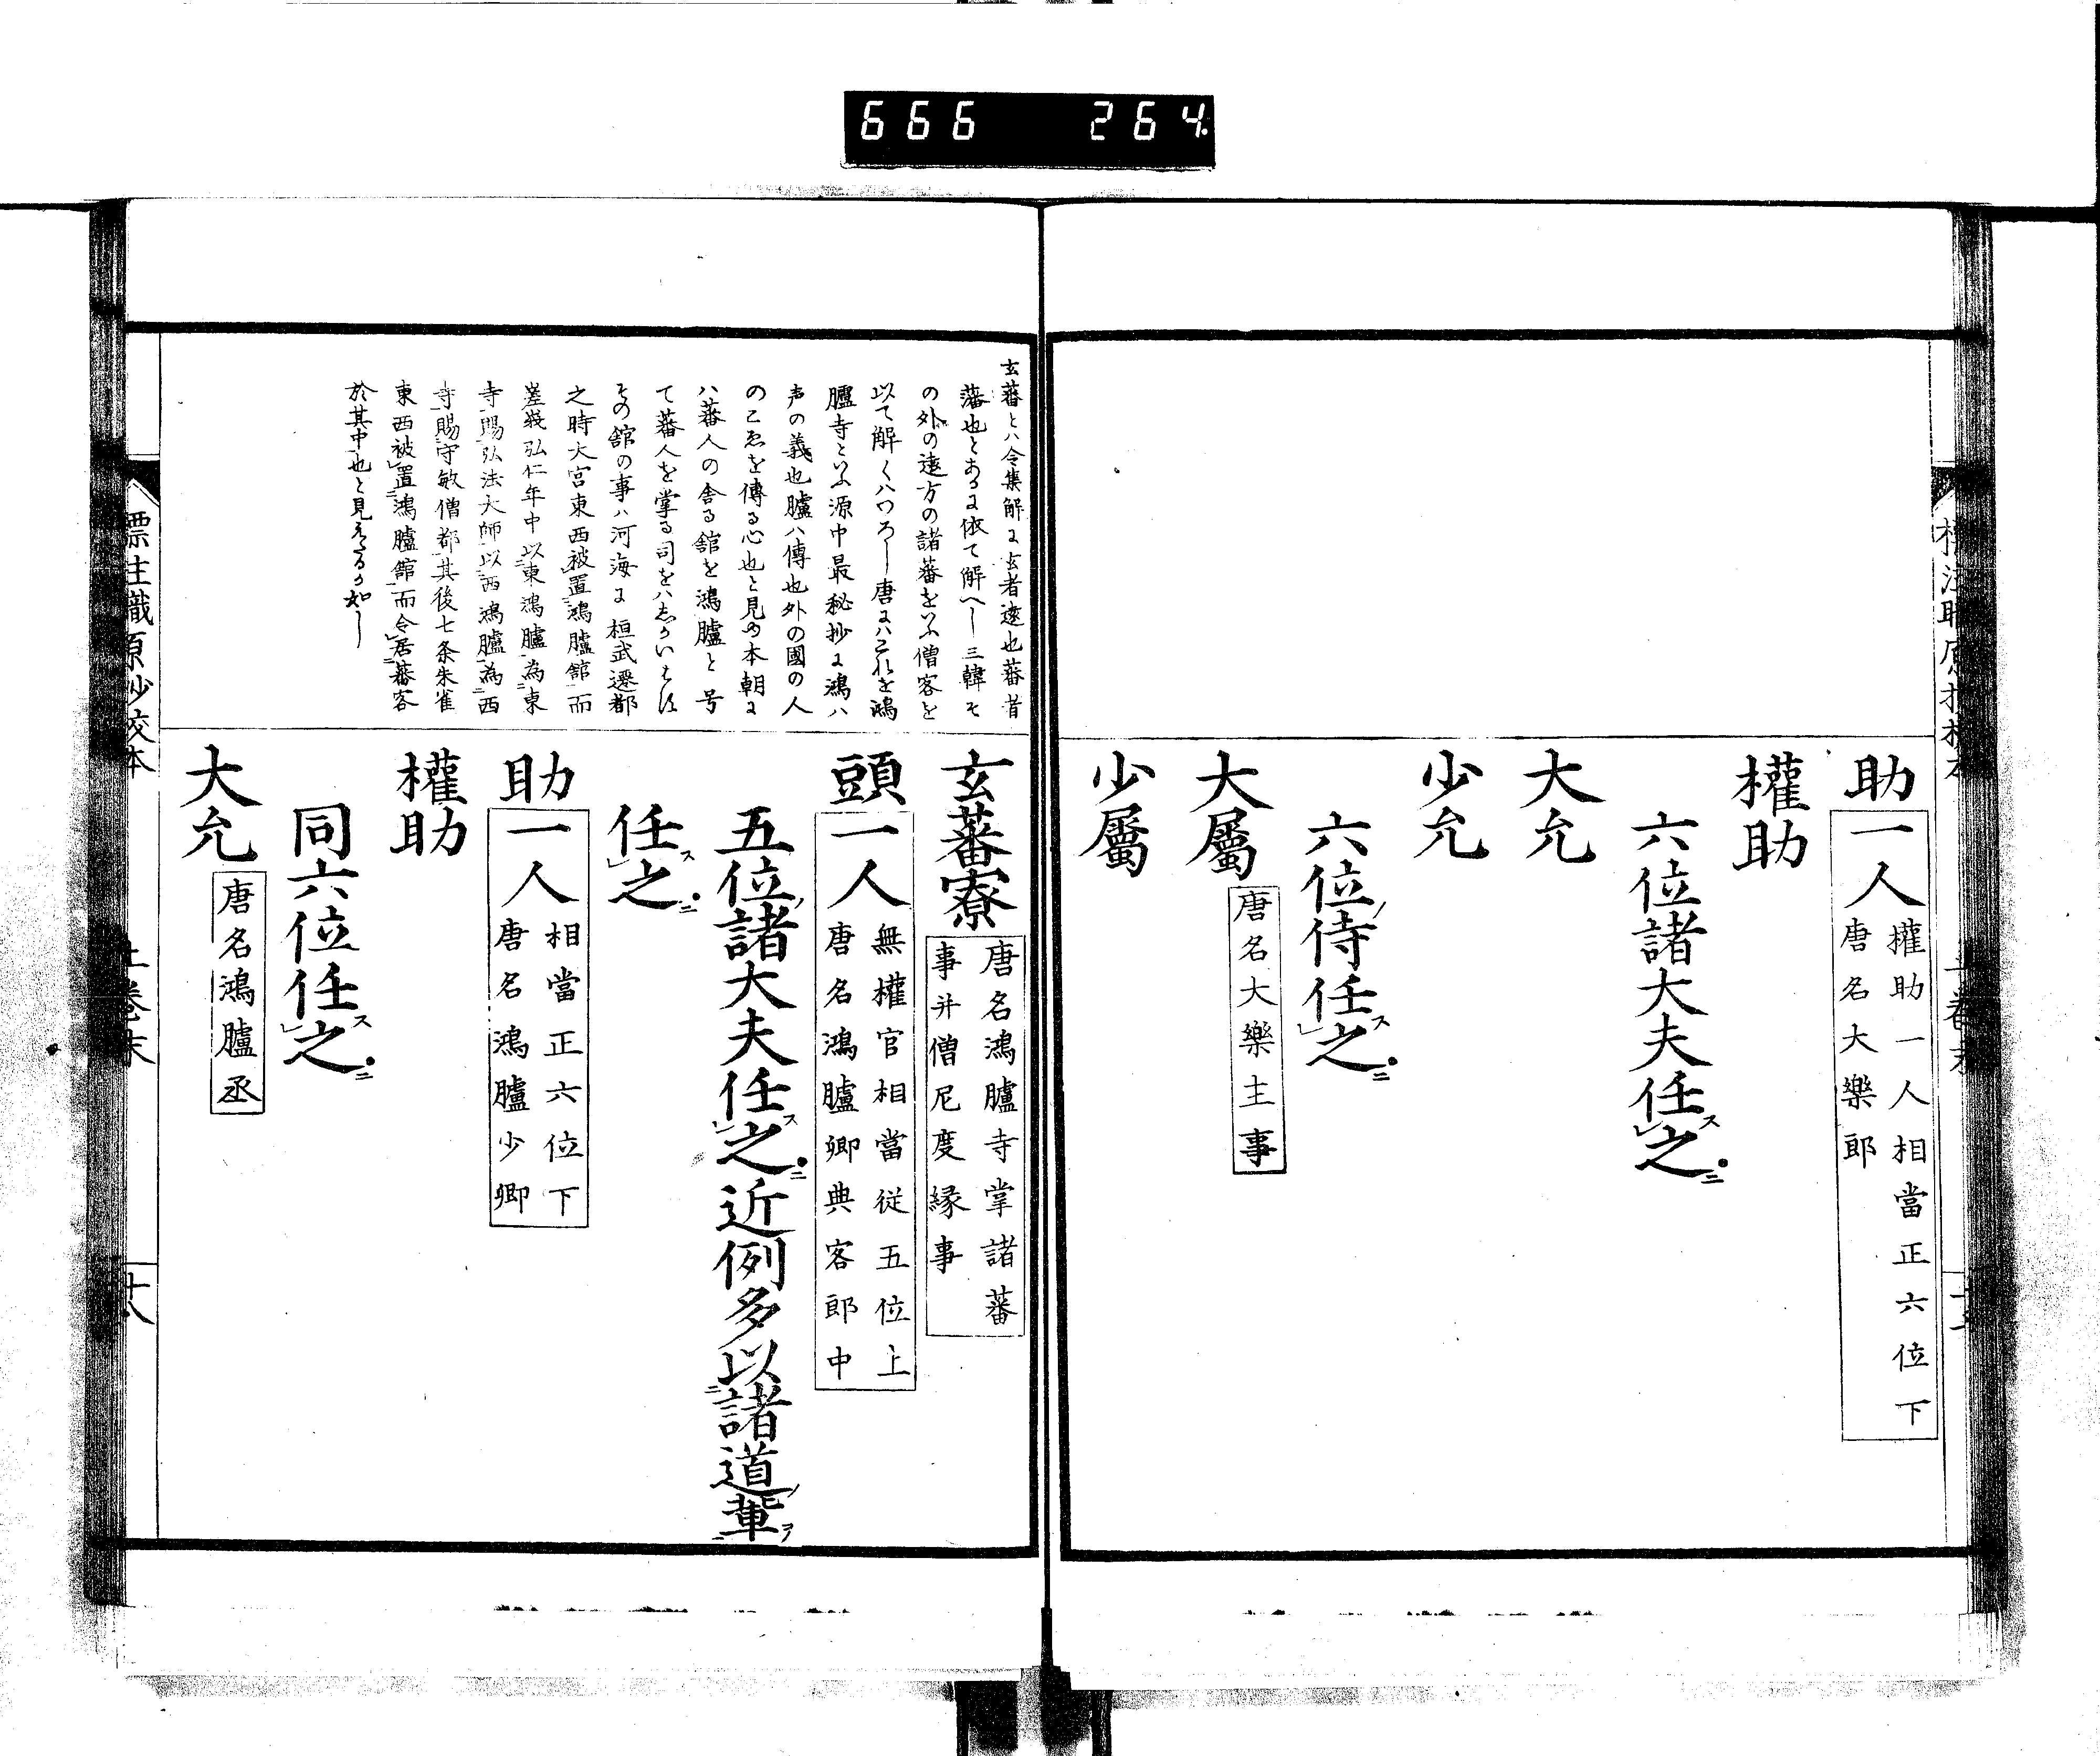 666 264
助 一人 權助一人相當正六位下
唐名大樂郎
權助
六位諸大夫任之
大允
少允
六位侍任之
大屬 唐名大樂主事
少屬
玄蕃とハ令集解に玄者遠也蕃者
藩也とあるに依て解へし三韓そ
の外の遠方の諸蕃をいふ僧客を
以て解くハわろし唐にハこれを鴻
臚寺といふ源中最秘抄に鴻ハ
声の義也臚ハ傳也外の國の人
のこゑを傳る心也と見ゆ本朝に
ハ蕃人の舎る舘を鴻臚と号
て蕃人を掌る司をハ
その舘の事ハ河海に桓武遷都
之時大宮東西被置鴻臚館而
嵯峩弘仁年中以東鴻臚為東
寺賜弘法大師以西鴻臚為西
寺賜守敏僧都其後七条朱雀
東西被置鴻臚館而令居蕃客
於其中也と見えたるか如し
玄蕃寮 唐名鴻臚寺掌諸蕃
事并僧尼度縁事
頭 一人 無權官相當從五位上
唐名鴻臚卿典客郎中
五位ノ諸大夫任スレ之ニ近例多以二諸道ノ輩ヲ一
任スレ之ニ
助 一人 相當正六位下
唐名鴻臚少卿
權助
同六位任スレ之ニ
大允 唐名鴻臚丞
標注職原抄校本 上巻末 十八